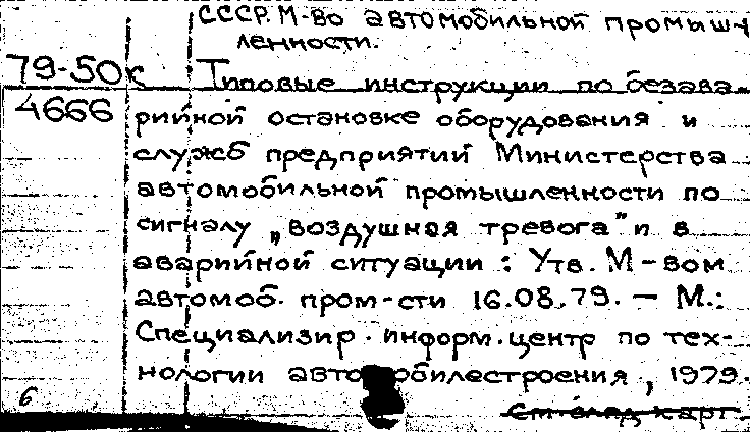 СССР. М-во автомобильной промыш-
ленности.
79-50к
Типовые инструкции по безава-
4666
рийной остановке оборудования и
служб предприятий Министерства
автомобильной промышленности по
сигналу „воздушная тревога" и в
аварийной ситуации : Утв. М-вом
автомоб. пром-сти 16.08.79. — М.:
Специализир. информ. центр по тех-
нологии автомобилестроения, 1979.
6
См. след. карт.